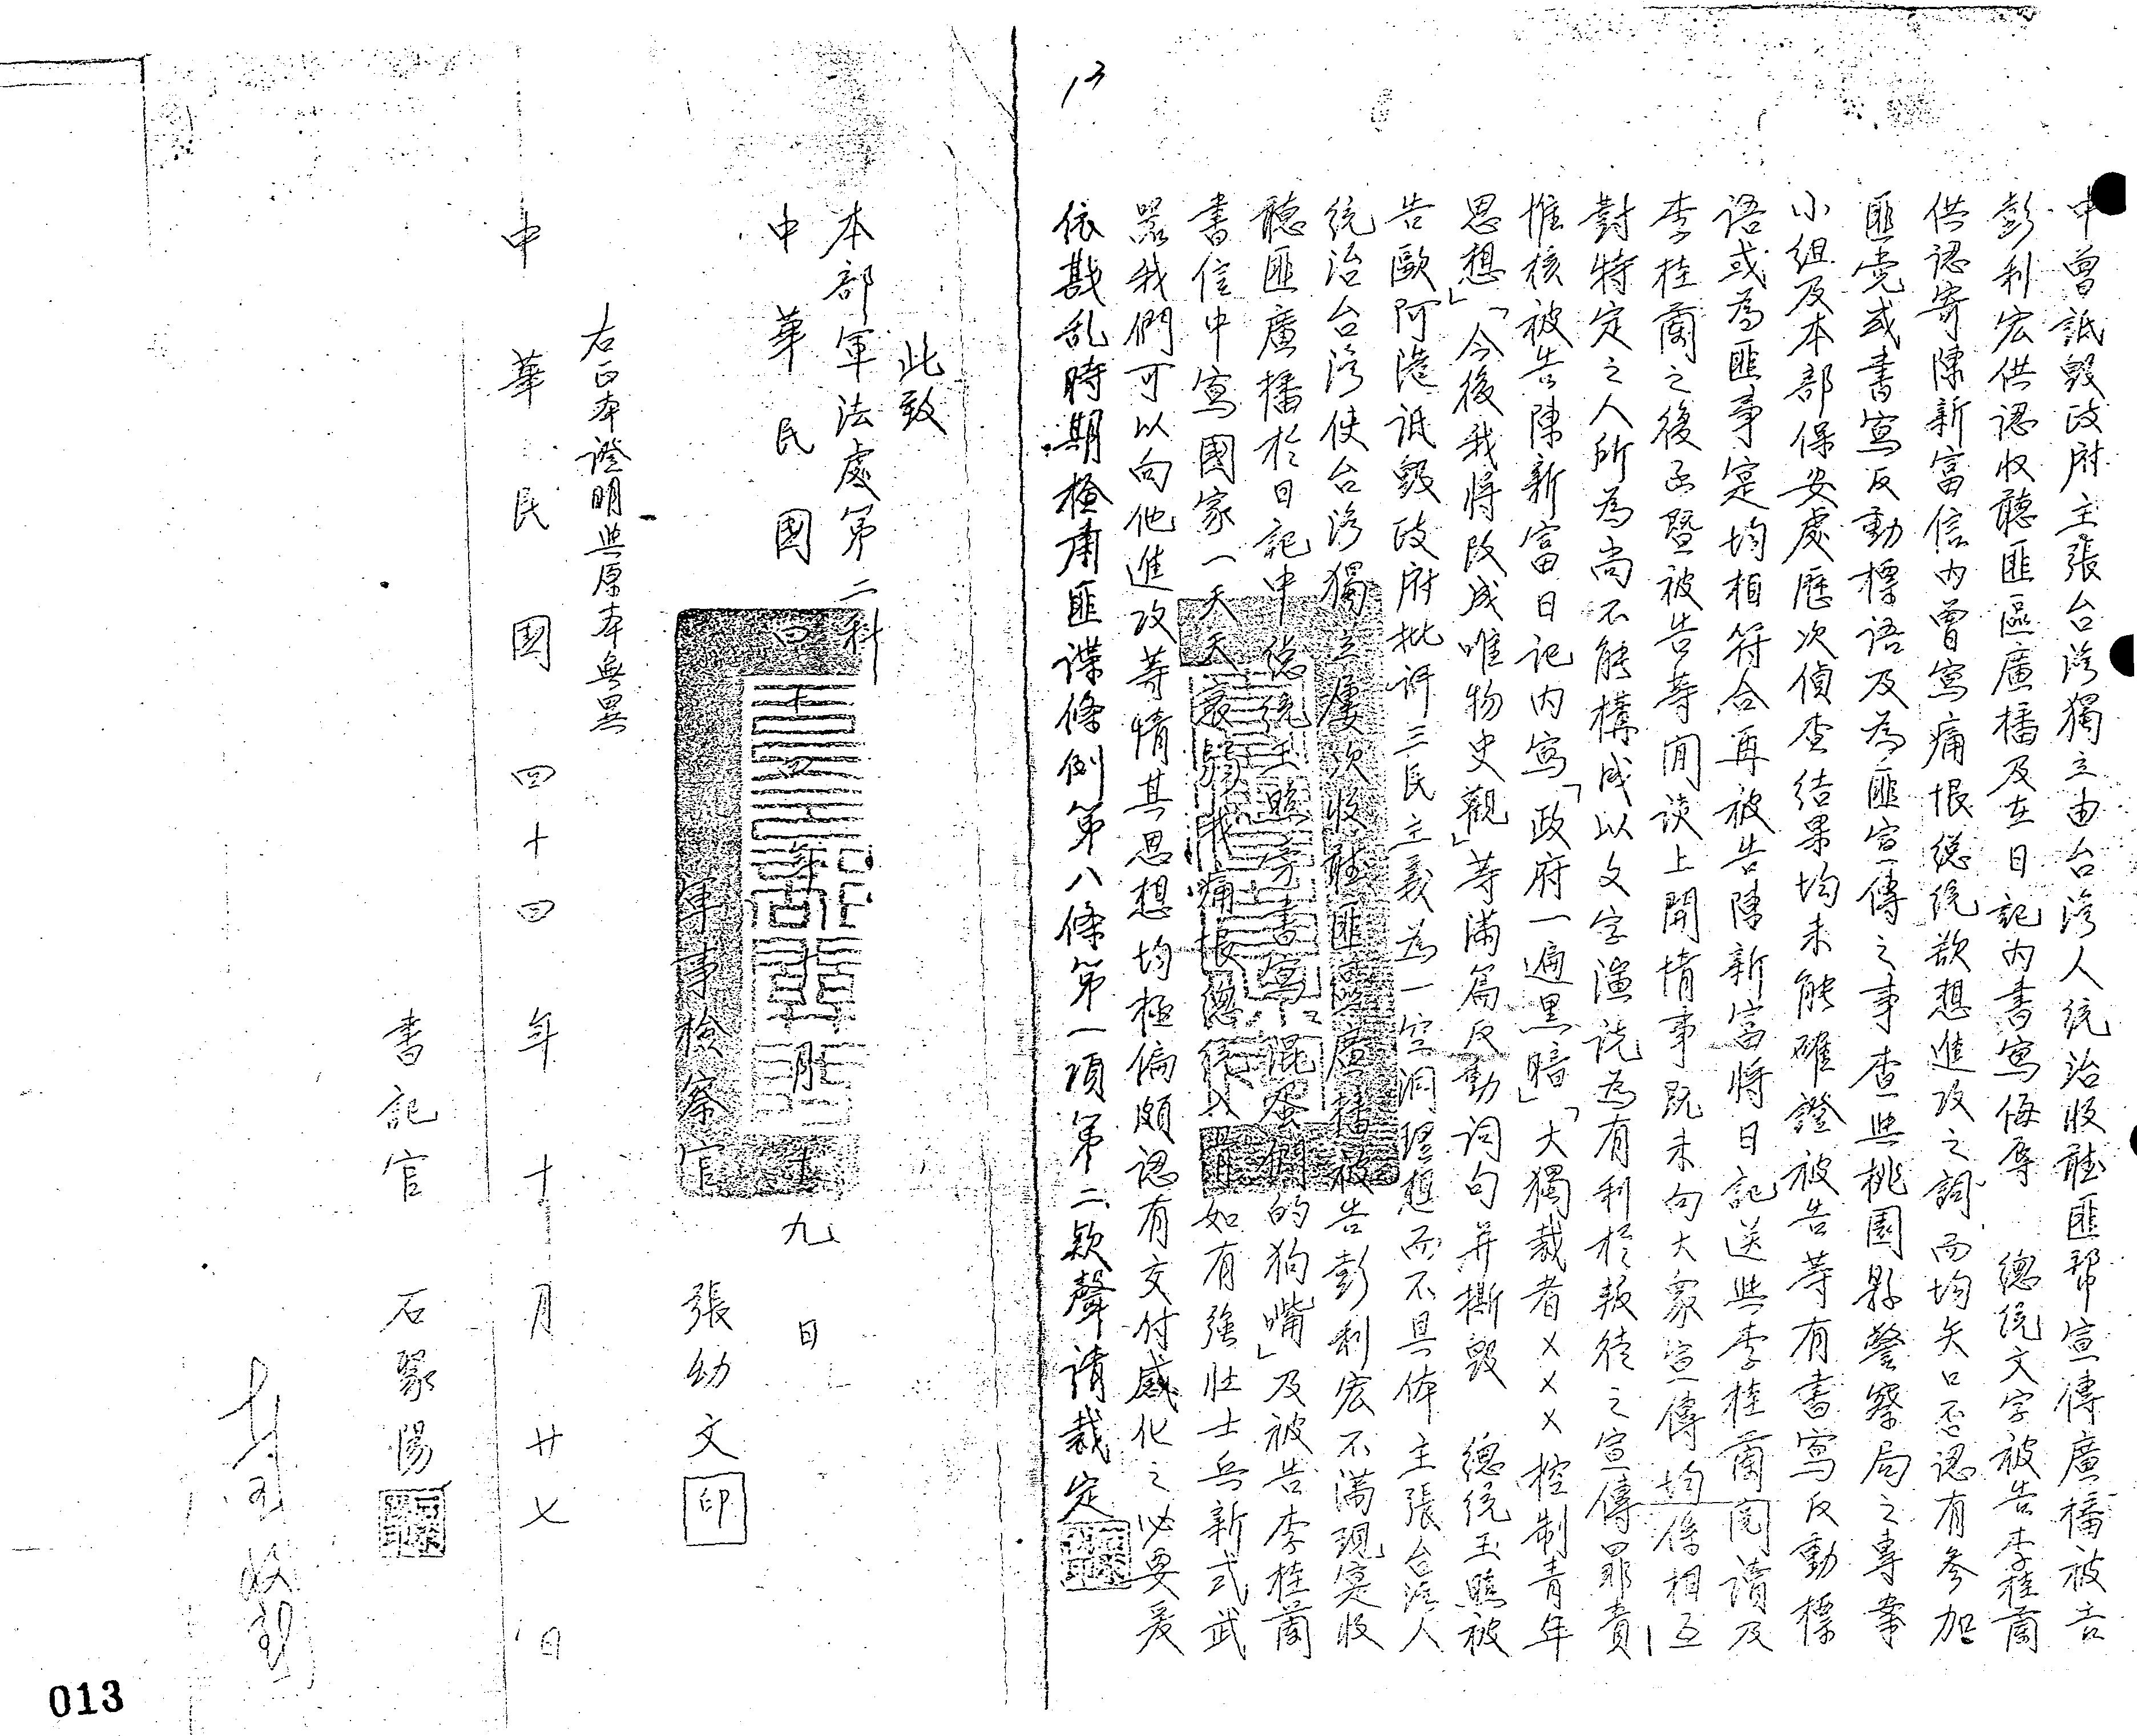 13
中曾詆毀政府主張台湾獨立由台湾人統治收聽匪帮宣傳廣播被告
彭利宏供認收聽匪區廣播及在日記內書寫侮辱　總統文字被告李桂蘭
供認寄陳新富信內曾寫痛恨總統欲想進攻之詞而均矢口否認有參加
匪党或書寫反動標語及為匪宣傳之事查與桃園縣警察局之專案
小組及本部保安處歷次偵查結果均未能確證被告等有書寫反動標
語或為匪事寔均相符合再被告陳新富將日記送與李桂蘭閱讀及
李桂蘭之後函暨被告等閒談上開情事既未向大衆宣傳均係相互
對特定之人所為尚不能構成以文字演說為有利於叛徒之宣傳罪責
惟核被告陳新富日記內寫「政府一遍黑暗」「大獨裁者×××控制青年
思想」「今後我將改成唯物史觀」等滿篇反動詞句并撕毀　總統玉照被
告歐阿港詆毀政府批評三民主義為一空洞理想而不具体主張台湾人
統治台湾使台湾獨立屢次收聽匪區廣播被告彭利宏不滿現寔收
聽匪廣播於日記中總統玉照旁書寫「混蛋們的狗嘴」及被告李桂蘭
書信中寫國家一天天衰弱我痛恨總統入骨如有強壯士兵新式武
器我們可以向他進攻等情其思想均極偏頗認有交付感化之必要爰
依戡乱時期檢肅匪諜條例第八條第一項第二款聲請裁定
此致
本部軍法處第二科
中華民國四十四年十月十九日
軍事檢察官　張幼文　印
右正本證明與原本無異
中華民國四十四年十月廿七日
書記官　石家陽
013